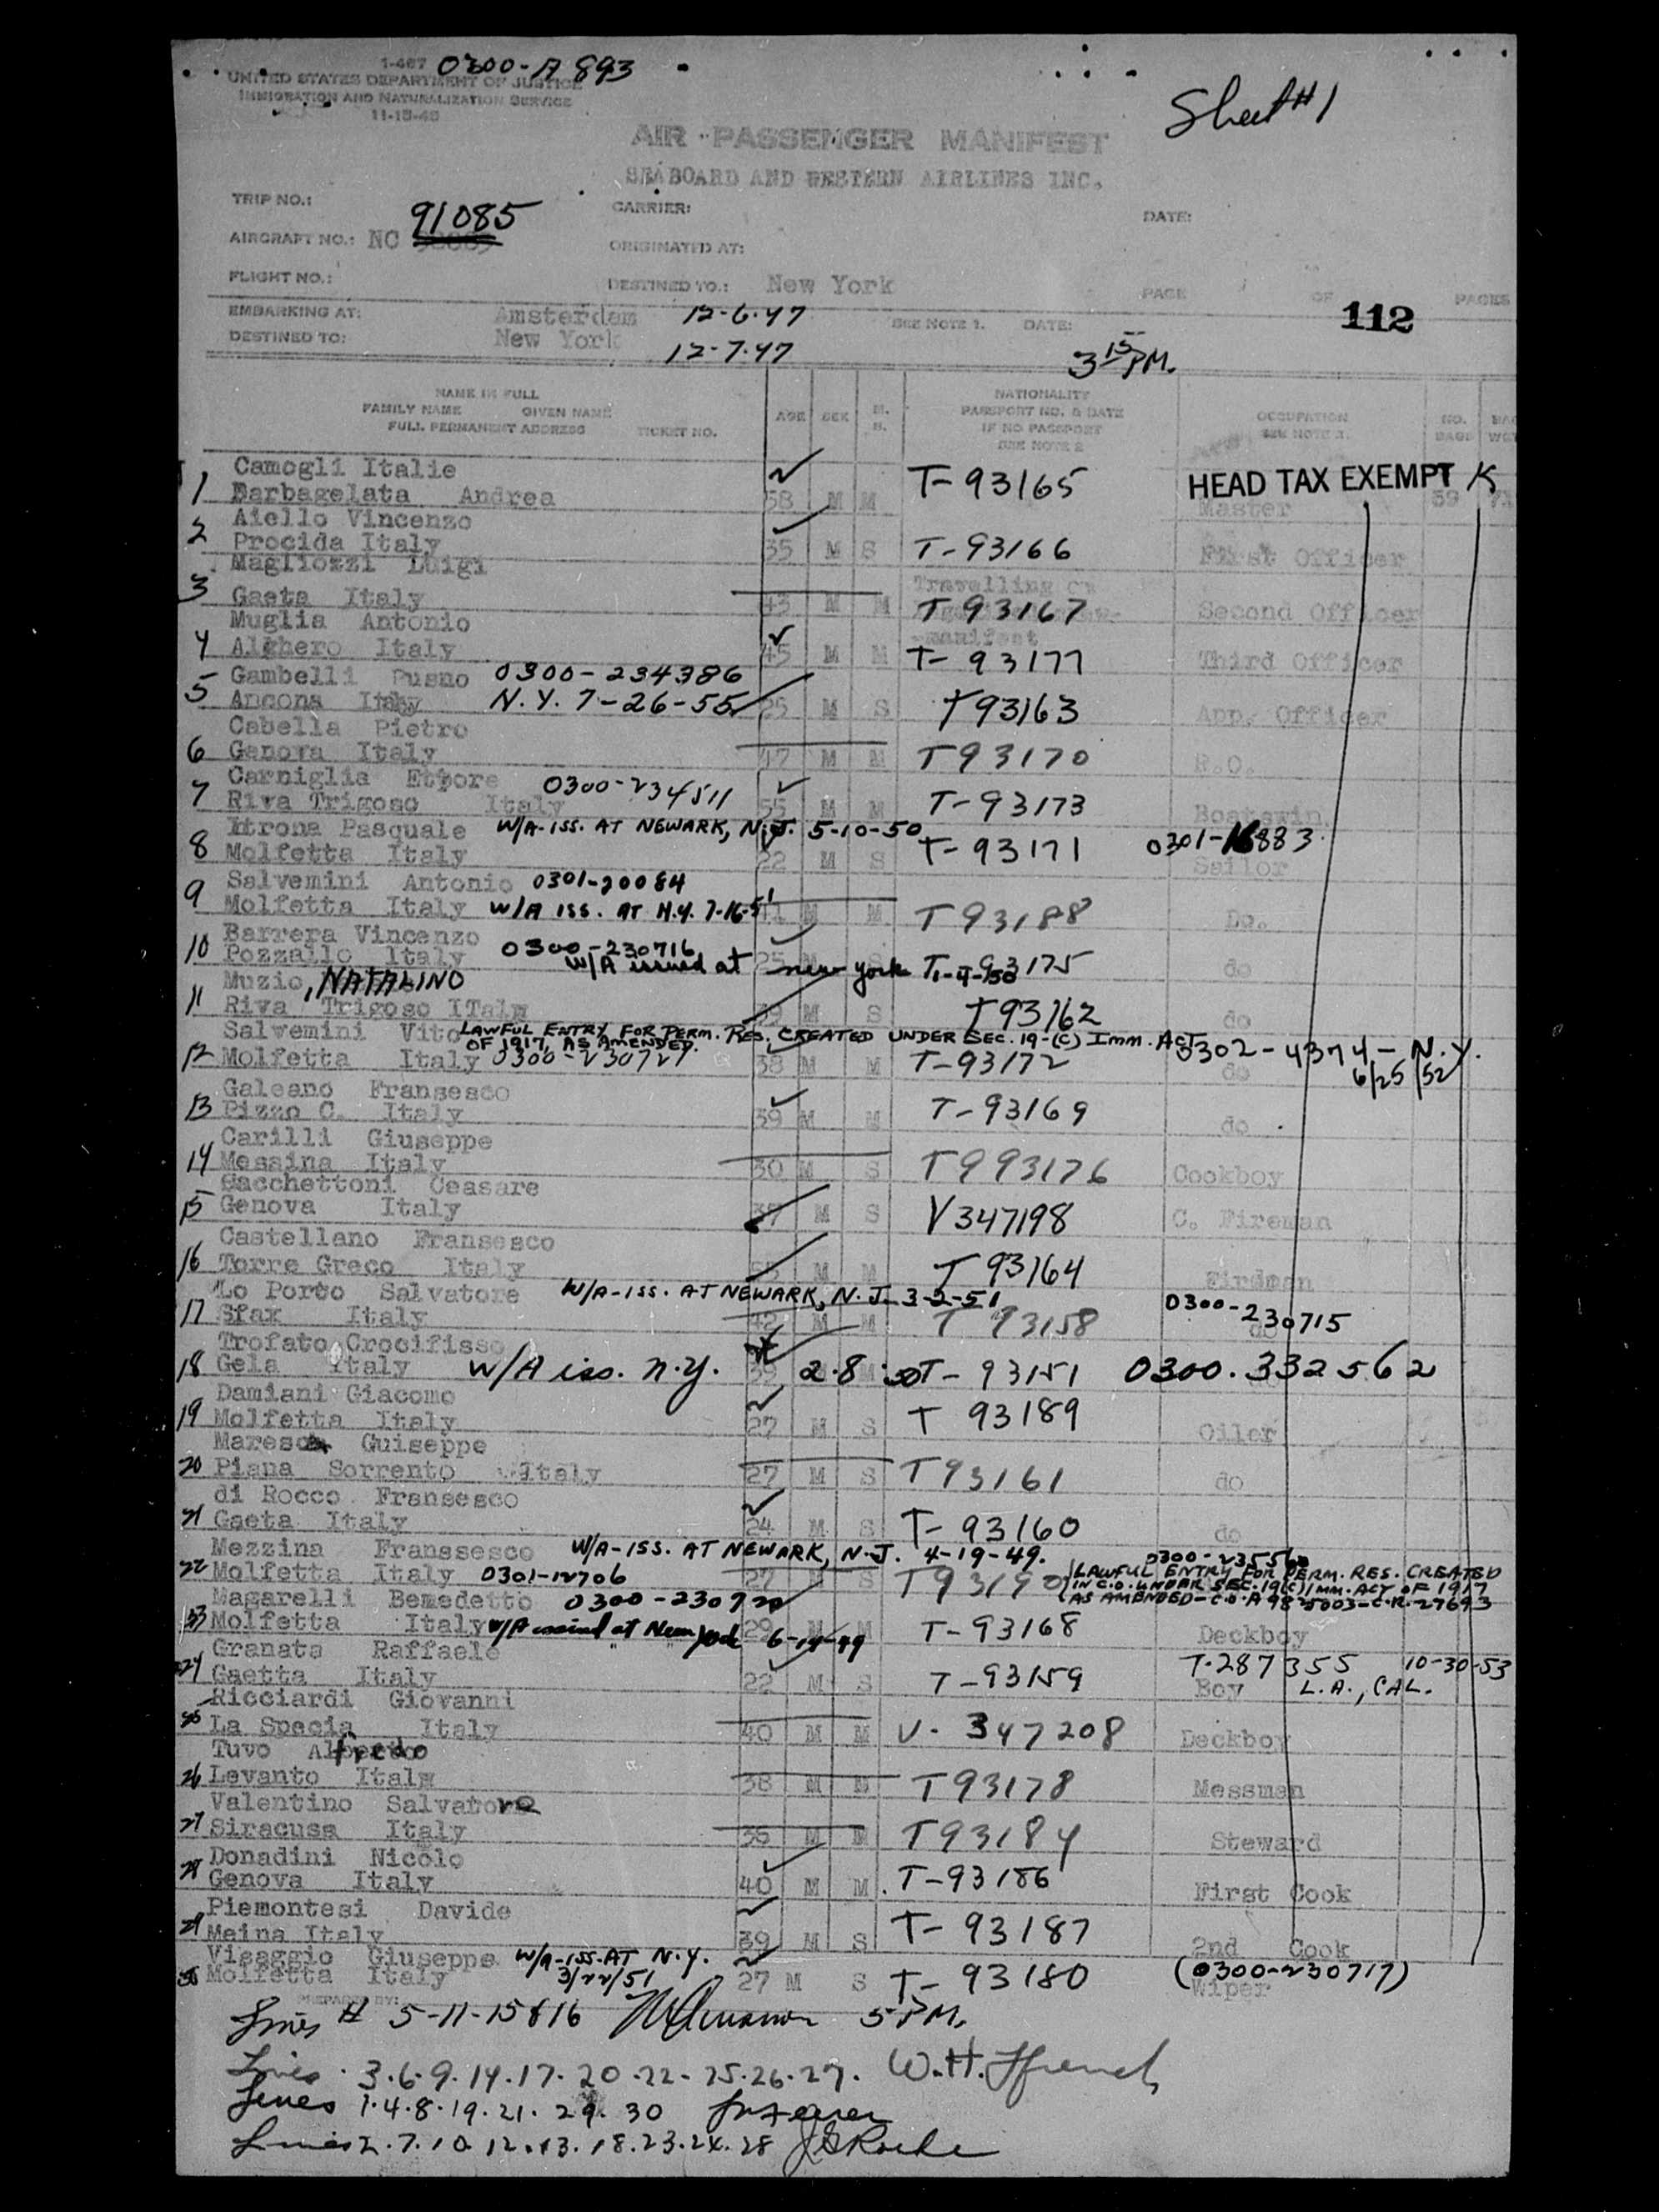 1-467 0300-A 893
UNITED STATES DEPARTMENT OF JUSTICE
IMMIGRATION AND NATURALIZATION SERVICE
11-15-45
Sheet #1
AIR PASSENGER MANIFEST
SEABOARD AND WESTERN AIRLINES INC.
TRIP NO.: CARRIER: DATE:
91085
AIRCRAFT NO.: NC ORIGINATED AT:
FLIGHT NO.: DESTINED TO.: New York PAGE OF PAGES
112
EMBARKING AT: Amsterdam 12-6-47 SEE NOTE 1. DATE:
DESTINED TO: New York 12-7-47 3 15 PM.
NAME IN FULL
FAMILY NAME GIVEN NAME
FULL PERMANENT ADDRESS TICKET NO.
AGE SEX M. S.
NATIONALITY
PASSPORT NO. & DATE
IF NO PASSPORT
SEE NOTE 2
OCCUPATION
SEE NOTE 3.
NO. BAGS
Camogli Italie
1 Barbagelata Andrea 58 M M T-93165 HEAD TAX EXEMPT K
Master 59
Aiello Vincenzo
2 Procida Italy 35 M S T-93166 First Officer
Magliozzi Luigi
Travelling on
3 Gaeta Italy 43 M M T 93167 Second Officer
Muglia Antonio manifest
4 Alghero Italy 45 M M T-93177 Third Officer
Gambelli 0300-234386
5 Ancona Italy N.Y. 7-26-55 25 M S T93163 App. Officer
Cabella Pietro
6 Genova Italy 47 M M T93170 R.O.
Carniglia Ettore 0300-234511
7 Riva Trigoso Italy 55 M M T-93173 Boatswin.
Itrona Pasquale W/A-ISS. AT NEWARK, N.J. 5-10-50
8 Molfetta Italy 22 M S T-93171 0301-16883.
Sailor
Salvemini Antonio 0301-20084
9 Molfetta Italy W/A ISS. AT N.Y. 7-16-51 M M T 93188 Do.
Barrera Vincenzo 0300-230716
10 Pozzallo Italy W/A issued at New York 1-4-50 25 T-93175 do
Muzio, NATALINO
11 Riva Trigoso ITaly M S T93162 do
Salvemini Vito LAWFUL ENTRY FOR PERM. RES. CREATED UNDER SEC. 19-(C) IMM. ACT
OF 1917, AS AMENDED. 0302-4374-N.Y.
12 Molfetta Italy 0300-230727 38 M M T-93172 do 6/25/52
Galeano Fransesco
13 Pizzo C. Italy 39 M M T-93169 do
Carilli Giuseppe
14 Messina Italy 30 M S T993176 Cookboy
Sacchettoni Ceasare
15 Genova Italy 37 M S V347198 C. Fireman
Castellano Fransesco
16 Torre Greco Italy 55 M M T 93164 Firdman
Lo Porto Salvatore W/A-ISS. AT NEWARK, N.J. 3-2-51
17 Sfax Italy 42 M M T 93158 0300-230715
do
Trofato Crocifisso
18 Gela Italy W/A iss. N.Y. 2-8-50 T-93151 0300.332562
Damiani Giacomo
19 Molfetta Italy 27 M S T 93189 Oiler
Maresca Guiseppe
20 Piana Sorrento Italy 27 M S T93161 do
di Rocco Fransesco
21 Gaeta Italy 24 M S T-93160 do
Mezzina Franssesco W/A-ISS. AT NEWARK, N.J. 4-19-49.
22 Molfetta Italy 0301-12706 27 S T93190 LAWFUL ENTRY FOR PERM. RES. CREATED
IN C.O. UNDER SEC. 19(C) IMM. ACT OF 1917
AS AMENDED-C.O. A 9825003-C.R. 27693
Magarelli Benedetto
23 Molfetta Italy W/A issued at New York 6-14-49 29 M T-93168 Deckboy
Granata Raffaele T-287355 10-30-53
24 Gaetta Italy 22 M S T-93159 Boy L.A., CAL.
Ricciardi Giovanni
25 La Specia Italy 40 M M V-347208 Deckboy
Tuvo Alfredo
26 Levanto Italy 38 M M T93178 Messman
Valentino Salvatore
27 Siracusa Italy 35 M M T93184 Steward
Donadini Nicolo
28 Genova Italy 40 M M. T-93186 First Cook
Piemontesi Davide
29 Meina Italy 39 M S T-93187 2nd Cook
Visaggio Giuseppe W/A-ISS-AT N.Y.
30 Molfetta Italy 3/22/51 27 M S T-93180 (0300-230717)
Wiper
PREPARED BY:
Lines # 5-11-15 & 16 5 PM.
Lines 3.6.9.14.17.20.22-25.26.27. W.H. Ffrench
Lines 1.4.8.19.21.29.30
Lines 2.7.10.12.13.18.23.24.28 Roche